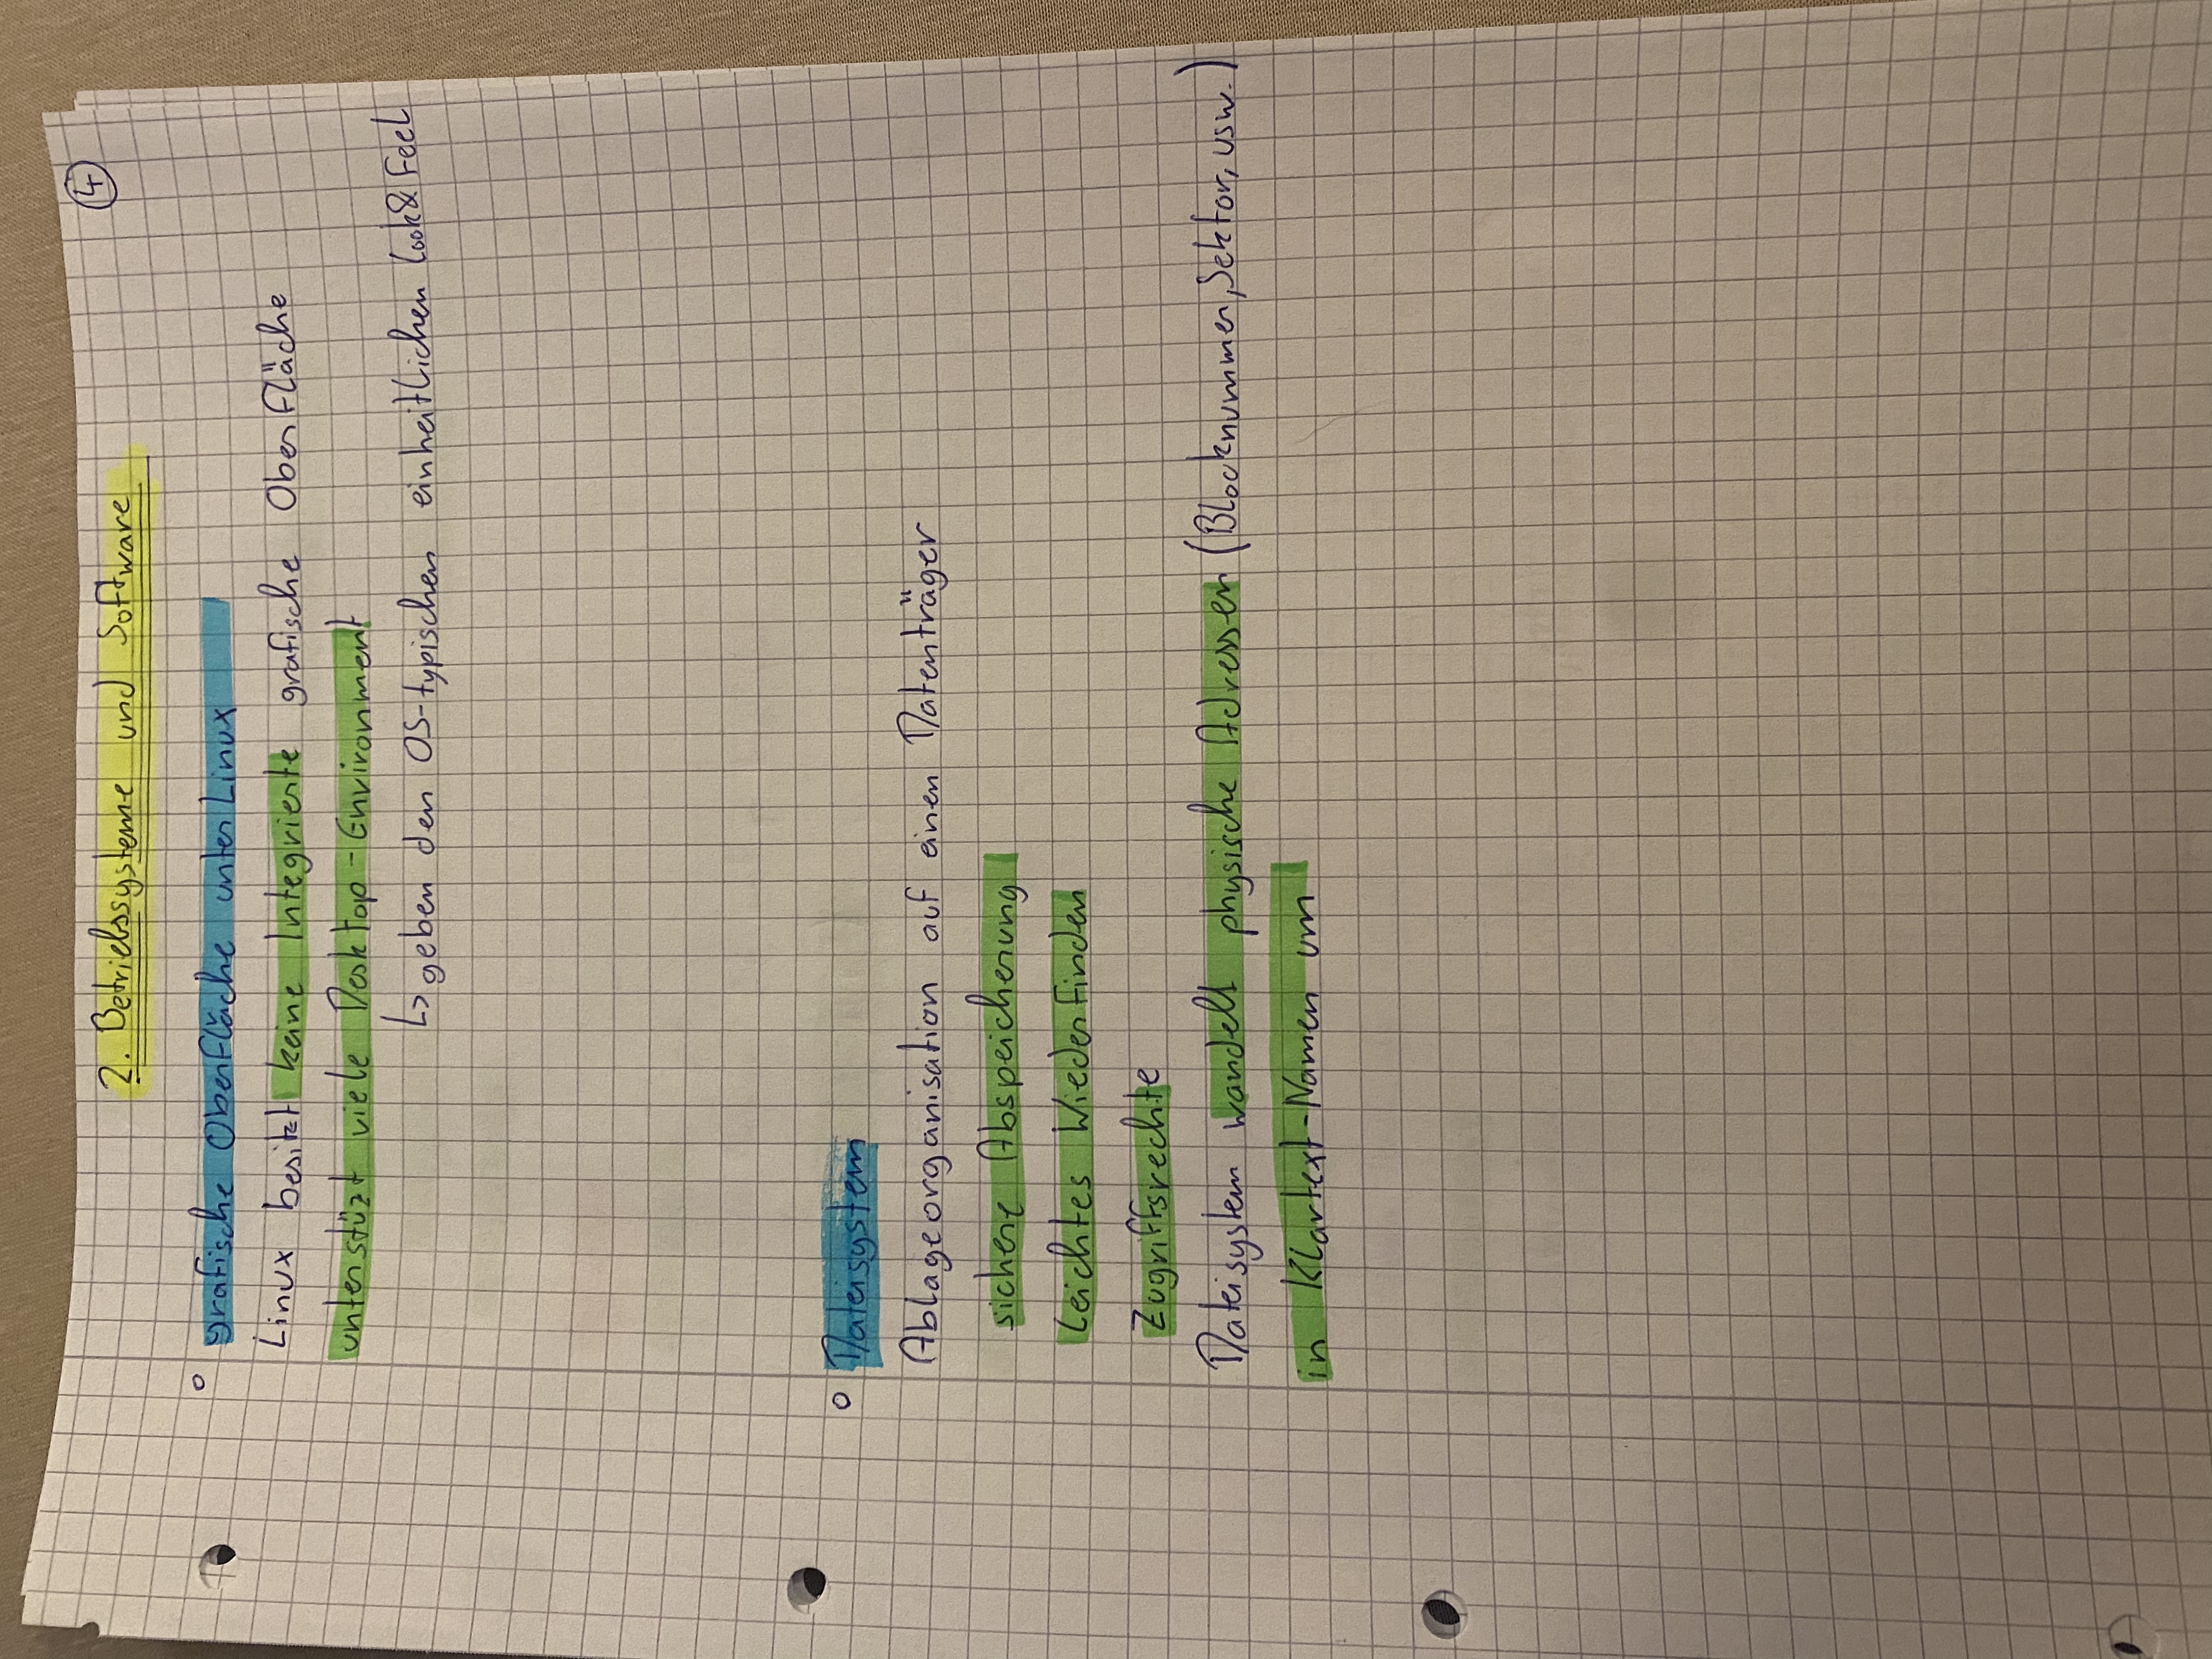 2. Betriebssysteme und Software
4
° grafische Oberfläche unter Linux
Linux besitzt keine Integrierte grafische Oberfläche
unterstüzt viele Desktop-Environment
↳ geben den OS-typischen einheitlichen Look & Feel
° Dateisystem
Ablageorganisation auf einen Datenträger
sichere Abspeicherung
Leichtes Wiederfinden
Zugriffsrechte
Dateisystem wandelt physische Adressen (Blocknummer, Sektor, usw.)
in Klartext-Namen um